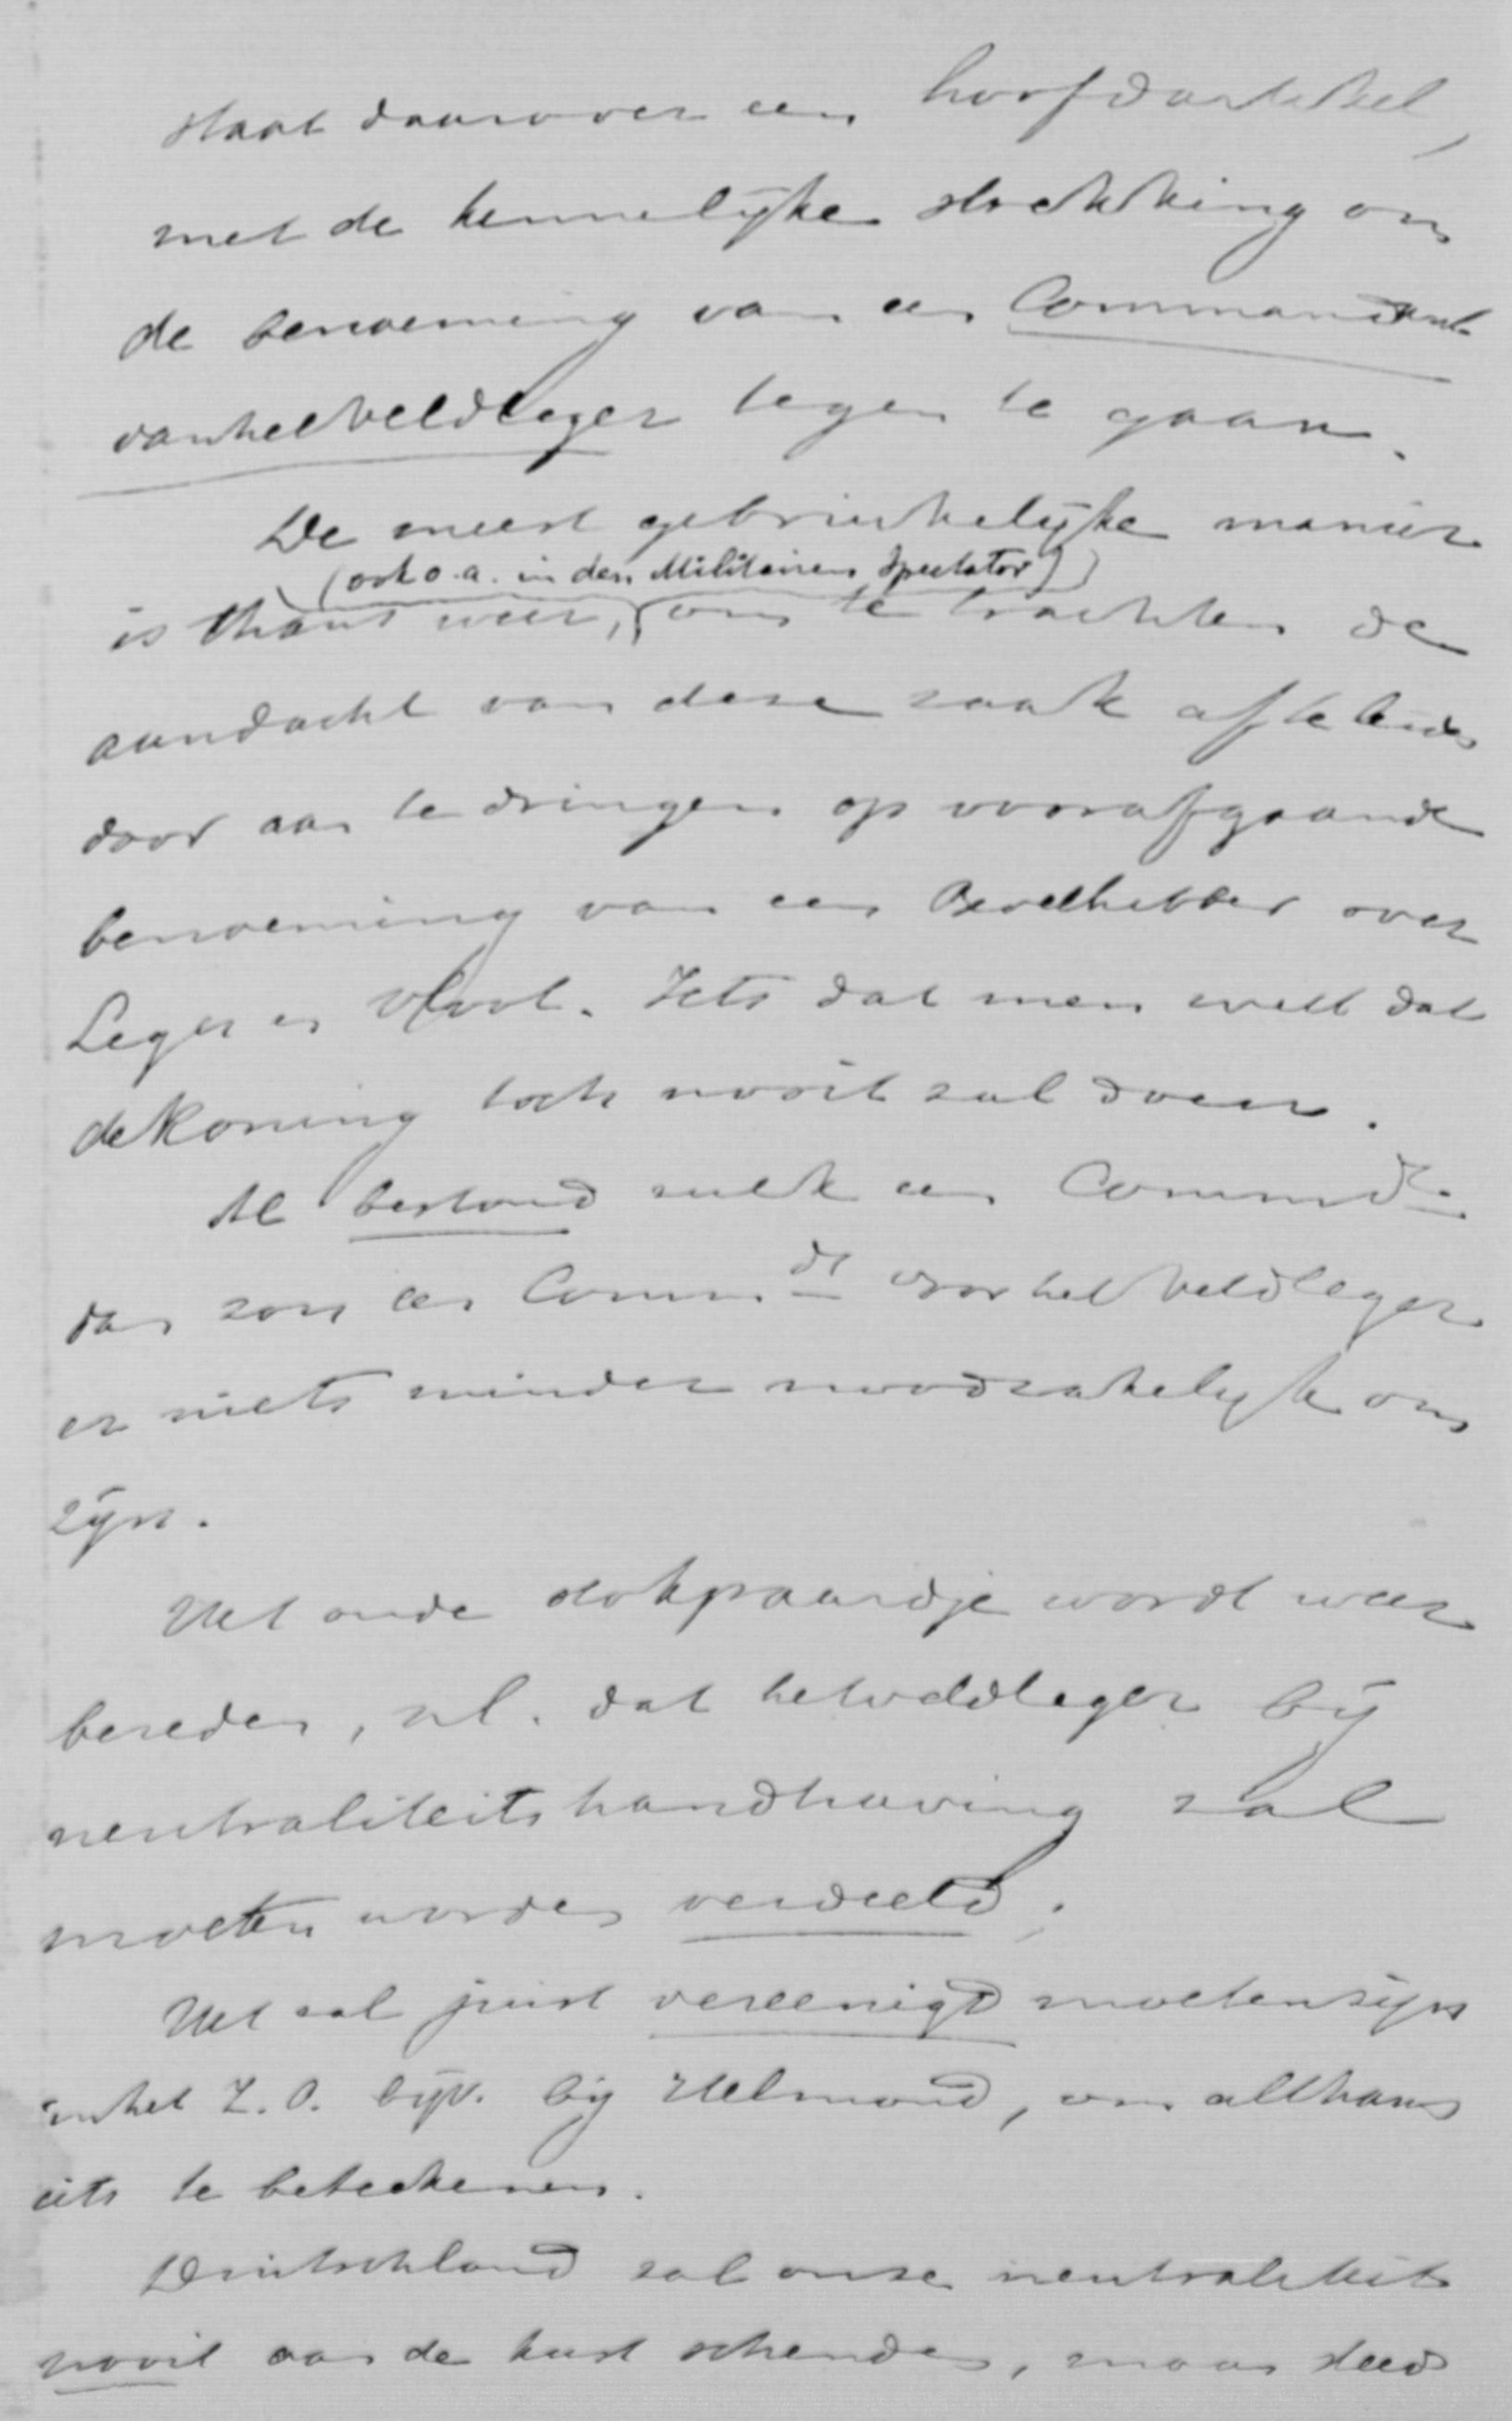 staat daarover een hoofdartikel,
met de kennelijke strekking om
de benoeming van een Commandant
van het veldleger tegen te gaan.
De meest gebruikelijke manier
(ook o.a. in den Militairen Spectator)
is thans weer, om te trachten de
aandacht van deze zaak af te leiden
door aan te dringen op voorafgaande
benoeming van een Bevelhebber over
Leger en Vloot. Iets dat men weet dat
de Koning toch nooit zal doen.
Al bestond zulk een Commdt.
dan zou een Comm.dt voor het veldleger
er niets minder noodzakelijk om
zijn.
Het oude stokpaardje wordt weer
bereden, nl. dat het veldleger bij
neutraliteitshandhaving zal
moeten worden verdeeld.
Het zal juist vereenigd moeten zijn
in het Z.O. bijv. bij Helmond, om althans
iets te beteekenen.
Duitschland zal onze neutraliteit
nooit aan de kust schenden, maar steeds